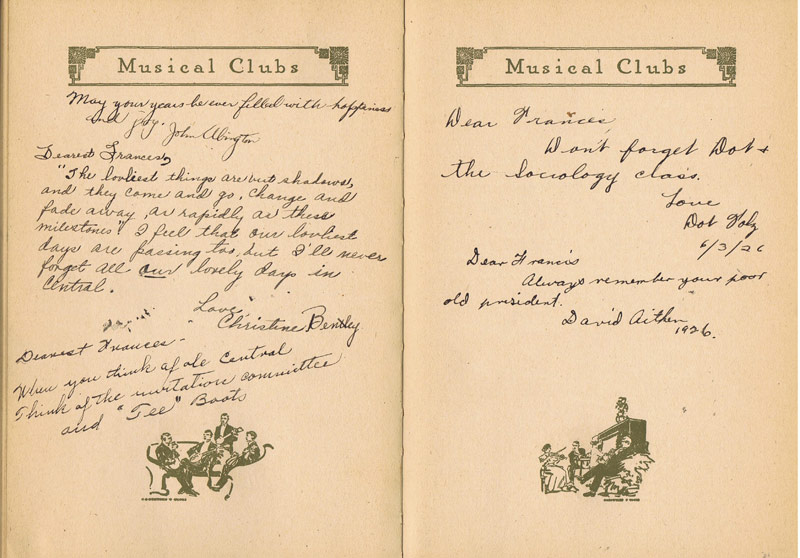 Musical Clubs
May your years be ever filled with happiness
and joy. John Abington
Dearest Frances,
"The lovliest things are but shadows,
and they come and go, change and
fade away, as rapidly as these
milestones". I feel that our lovliest
days are passing too, but I'll never
forget all our lovely days in
Central.
Love,
Christine Bentley
Dearest Frances -
When you think of ole Central
Think of the invitation committee
and "Tee" Boots
Musical Clubs
Dear Frances,
Won't forget Dot +
the Sociology class.
Love
Dot Volz
6/3/26
Dear Francis
Always remember your poor
old president.
David Aitken
1926.